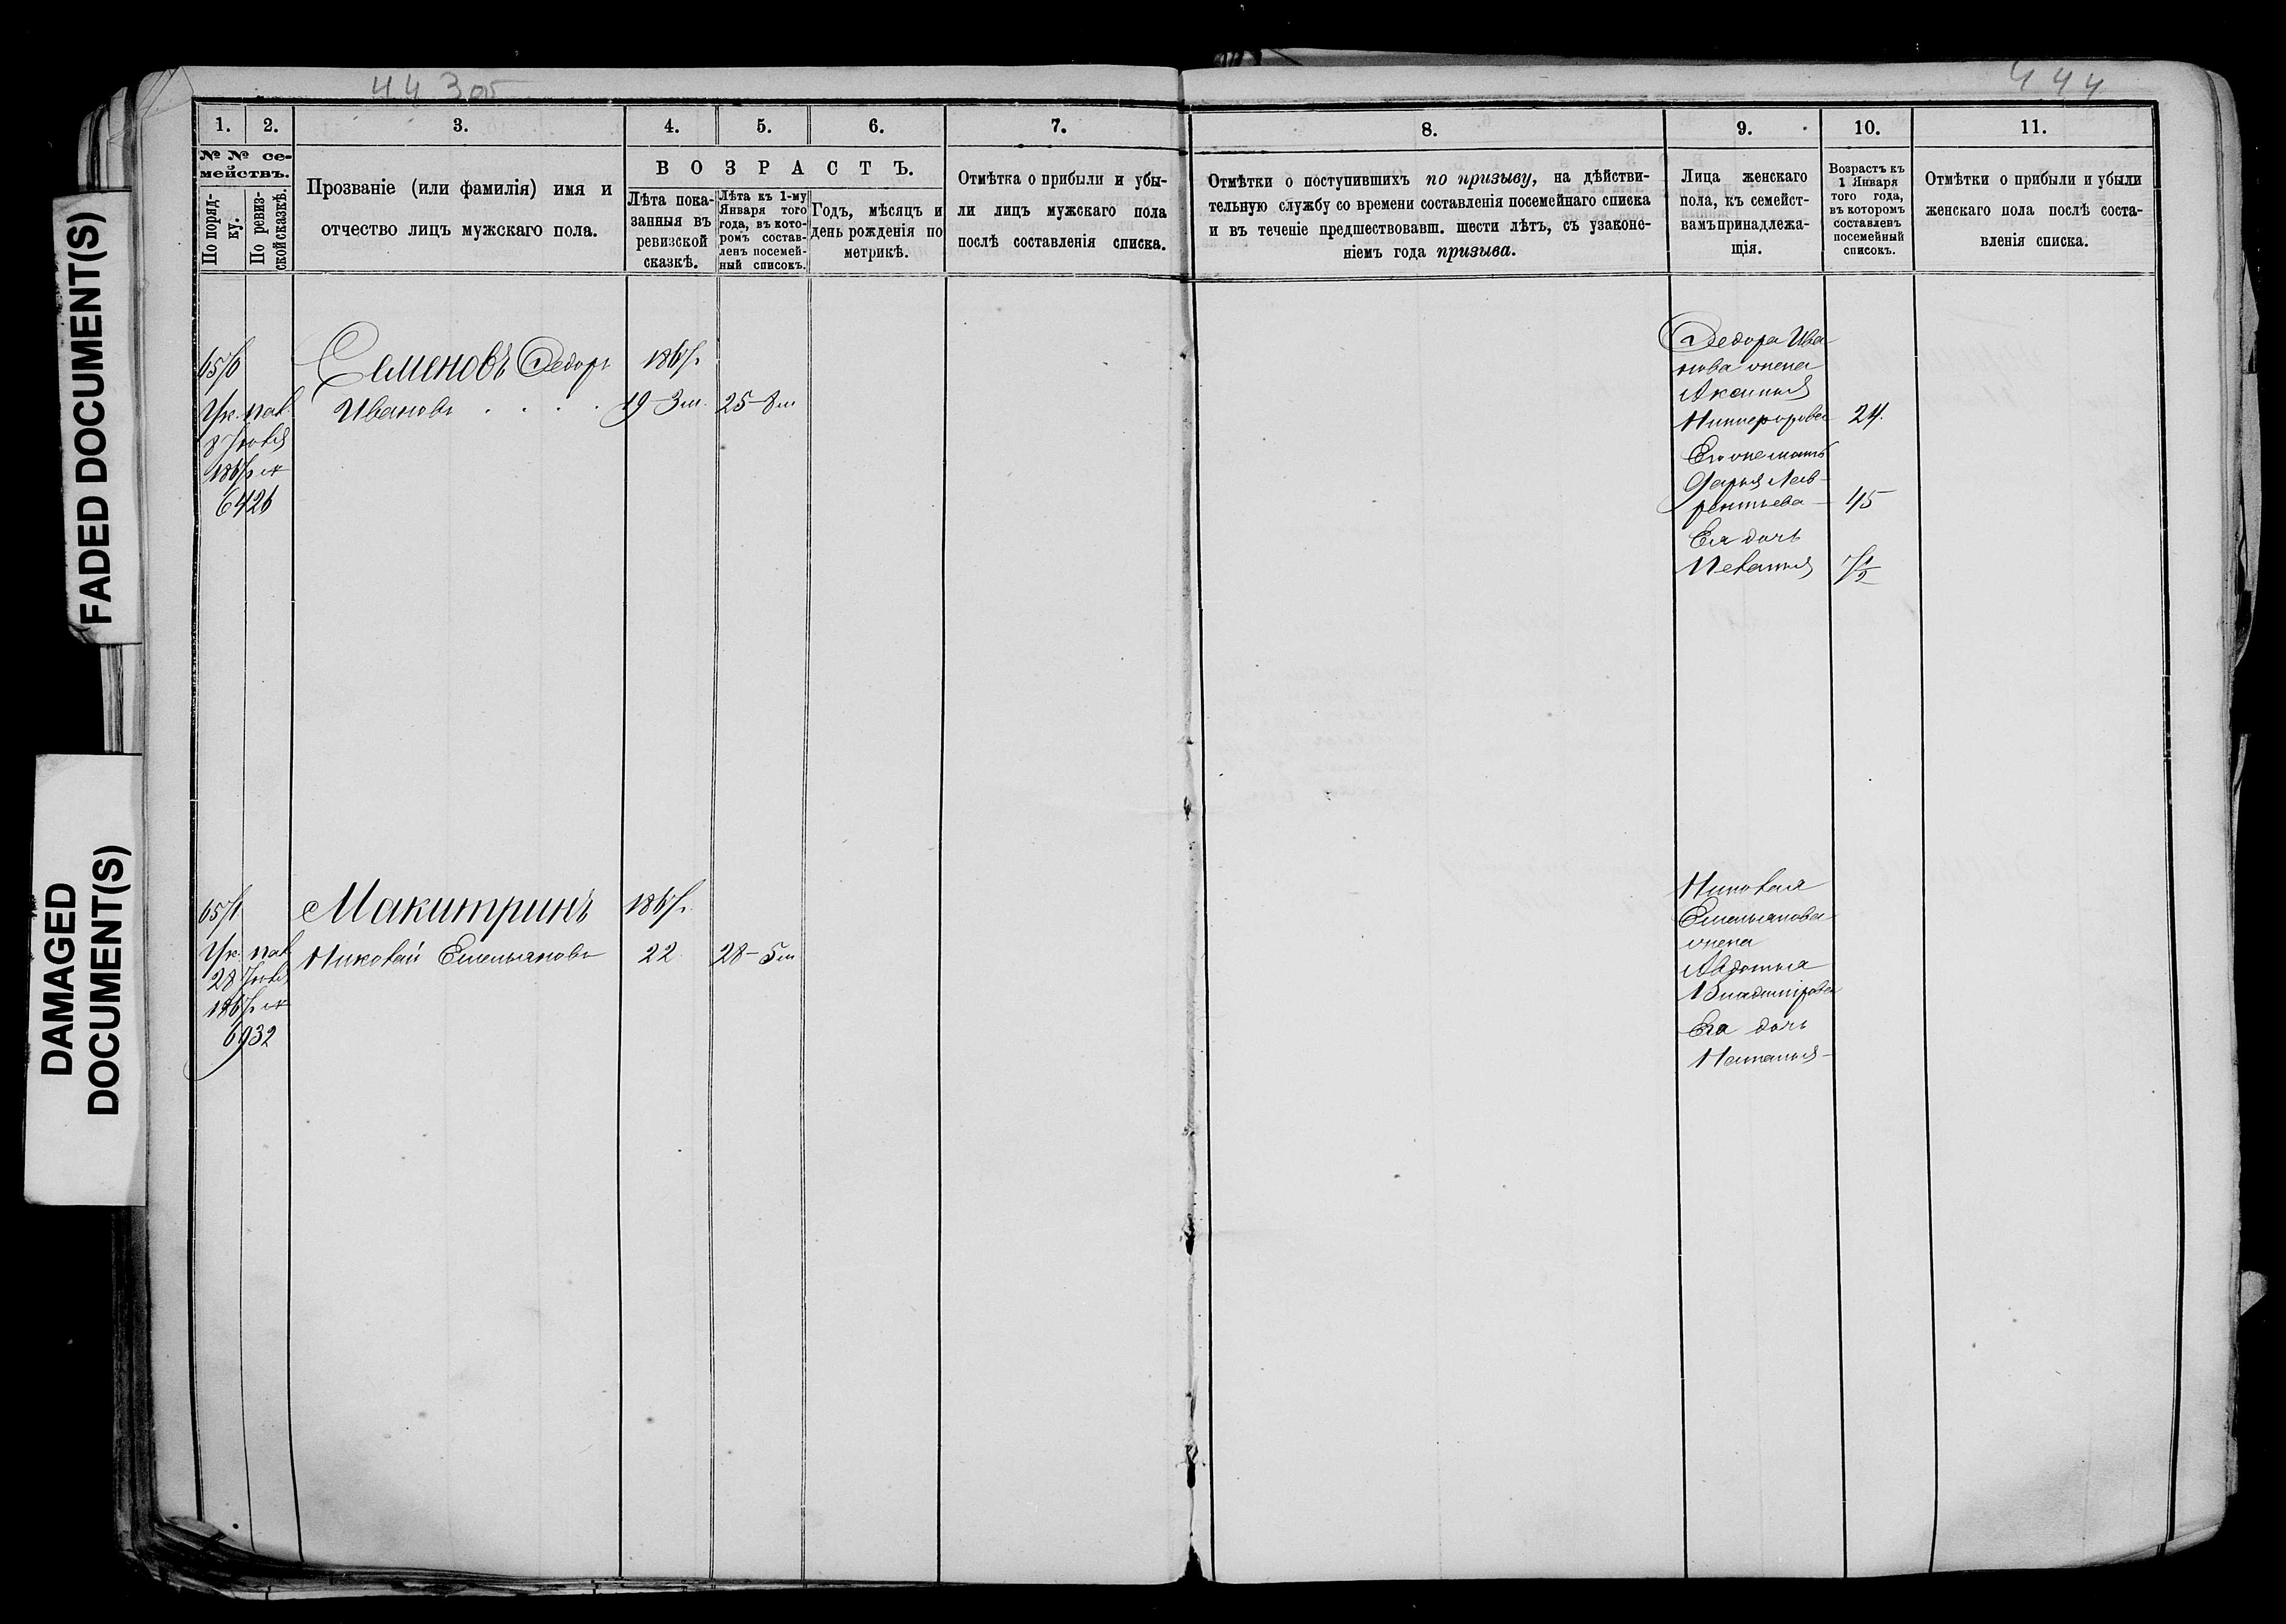 443об
444
FADED DOCUMENT(S)
DAMAGED
DOCUMENT(S)
1.
2.
3.
4.
5.
6.
7.
8.
9.
10.
11.
№ № се-
мействъ.
По поряд-
ку.
По ревиз-
ской сказкѣ.
Прозваніе (или фамилія) имя и
отчество лицъ мужскаго пола.
ВОЗРАСТЪ.
Лѣта пока-
занныя въ
ревизской
сказкѣ.
Лѣта къ 1-му
Января того
года, въ кото-
ромъ состав-
ленъ посемей-
ный списокъ.
Годъ, мѣсяцъ и
день рожденія по
метрикѣ.
Отмѣтка о прибыли и убы-
ли лицъ мужскаго пола
послѣ составленія списка.
Отмѣтки о поступившихъ по призыву, на дѣйстви-
тельную службу со времени составленія посемейнаго списка
и въ теченіе предшествовавш. шести лѣтъ, съ узаконе-
ніемъ года призыва.
Лица женскаго
пола, къ семейст-
вамъ принадлежа-
щія.
Возрастъ къ
1 Января
того года,
въ которомъ
составленъ
посемейный
списокъ.
Отмѣтки о прибыли и убыли
женскаго пола послѣ соста-
вленія списка.
Семеновъ Федоръ
Ивановъ
19-3м.
25-8м
Ук. пал.
8 Іюля
6426
Федора Ива-
нова жена
Аксинья
Никифорова
24.
Его же мать
Дарья Лав-
рентьева
45
Ея дочь
Меланья
7½
Макитринъ
Николай Емельяновъ
22
28-5м
Ук. пал.
28 Іюля
6932
Николая
Емельянова
жена
Авдотья
Владимірова
Его дочь
Наталья